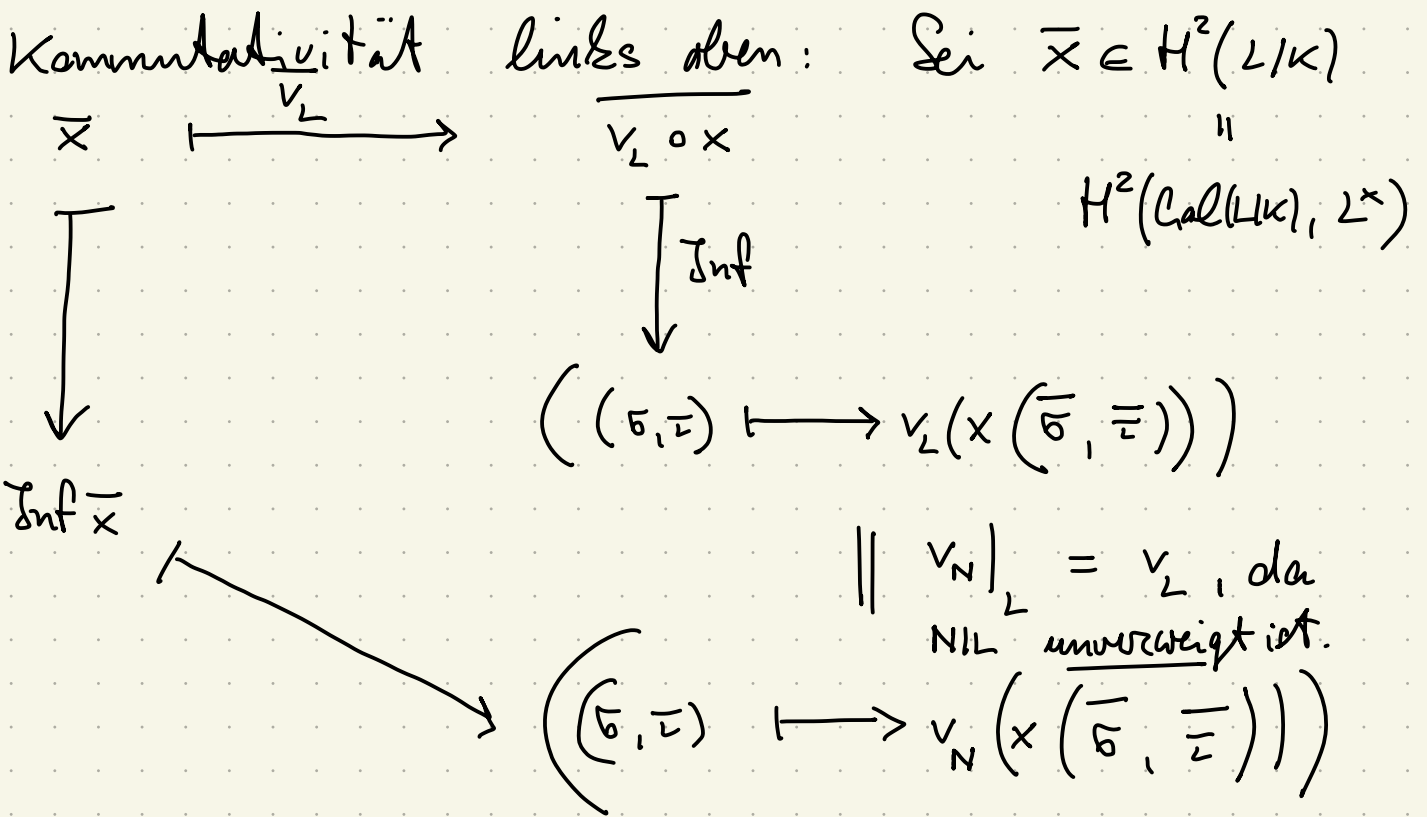 Kommutativität links oben: Sei x̄ ∈ H²(L/K)
x̄ ⟼ \overline{v_L ∘ x} =
v_L
H²(Gal(L/K), L^×)
Inf
((σ, τ) ⟼ v_L(x(σ̄, τ̄)))
Inf x̄
‖ v_N|_L = v_L, da
N|L unverzweigt ist.
((σ, τ) ⟼ v_N(x(σ̄, τ̄)))